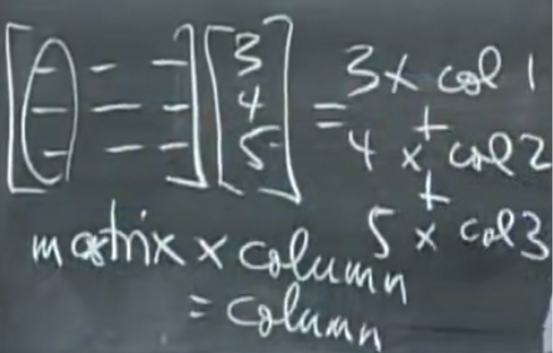 [ - - - ] [ 3 ] = 3 x col 1
[ - - - ] [ 4 ] + 4 x col 2
[ - - - ] [ 5 ] + 5 x col 3
matrix x column
= column